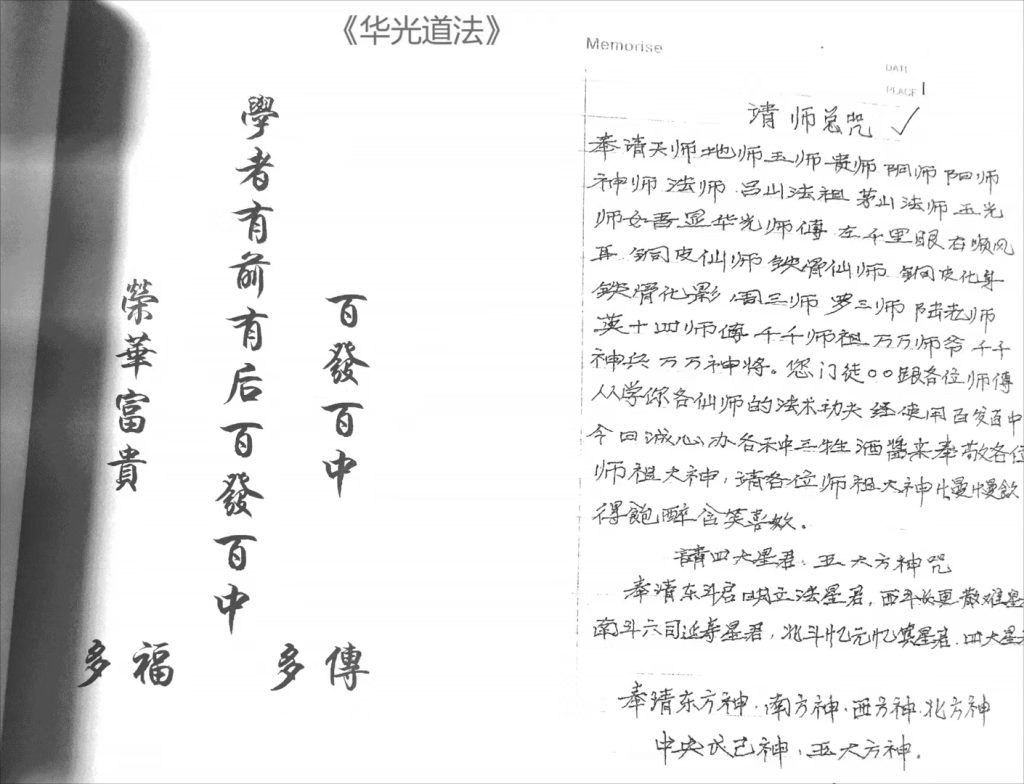 《华光道法》
百發百中
學者有前有后百發百中
榮華富貴
多福
多傳
Memorise
DATE
PLACE
请师总咒
奉请天师地师玉师贵师阴师阳师
神师法师吕山法祖茅山法师五光
师女吾显华光师傅左千里眼右顺风
耳铜皮仙师铁骨仙师铜皮化身
铁骨化影周三师罗三师陆老师
英十四师傅千千师祖万万师爷千千
神兵万万神将。您门徒○○跟各位师傅
从学你各仙师的法术功夫经使用百发百中
今日诚心办各种三牲酒醬来奉敬各位
师祖大神，请各位师祖大神慢慢飲
得飽醉含笑喜欢。
請四大星君．五大方神咒
奉请东斗君明立法星君，西斗长更散难星
南斗六司延寿星君，北斗忆元忆
星君．四大星
奉请东方神．南方神．西方神．北方神
中央戊己神，五大方神．